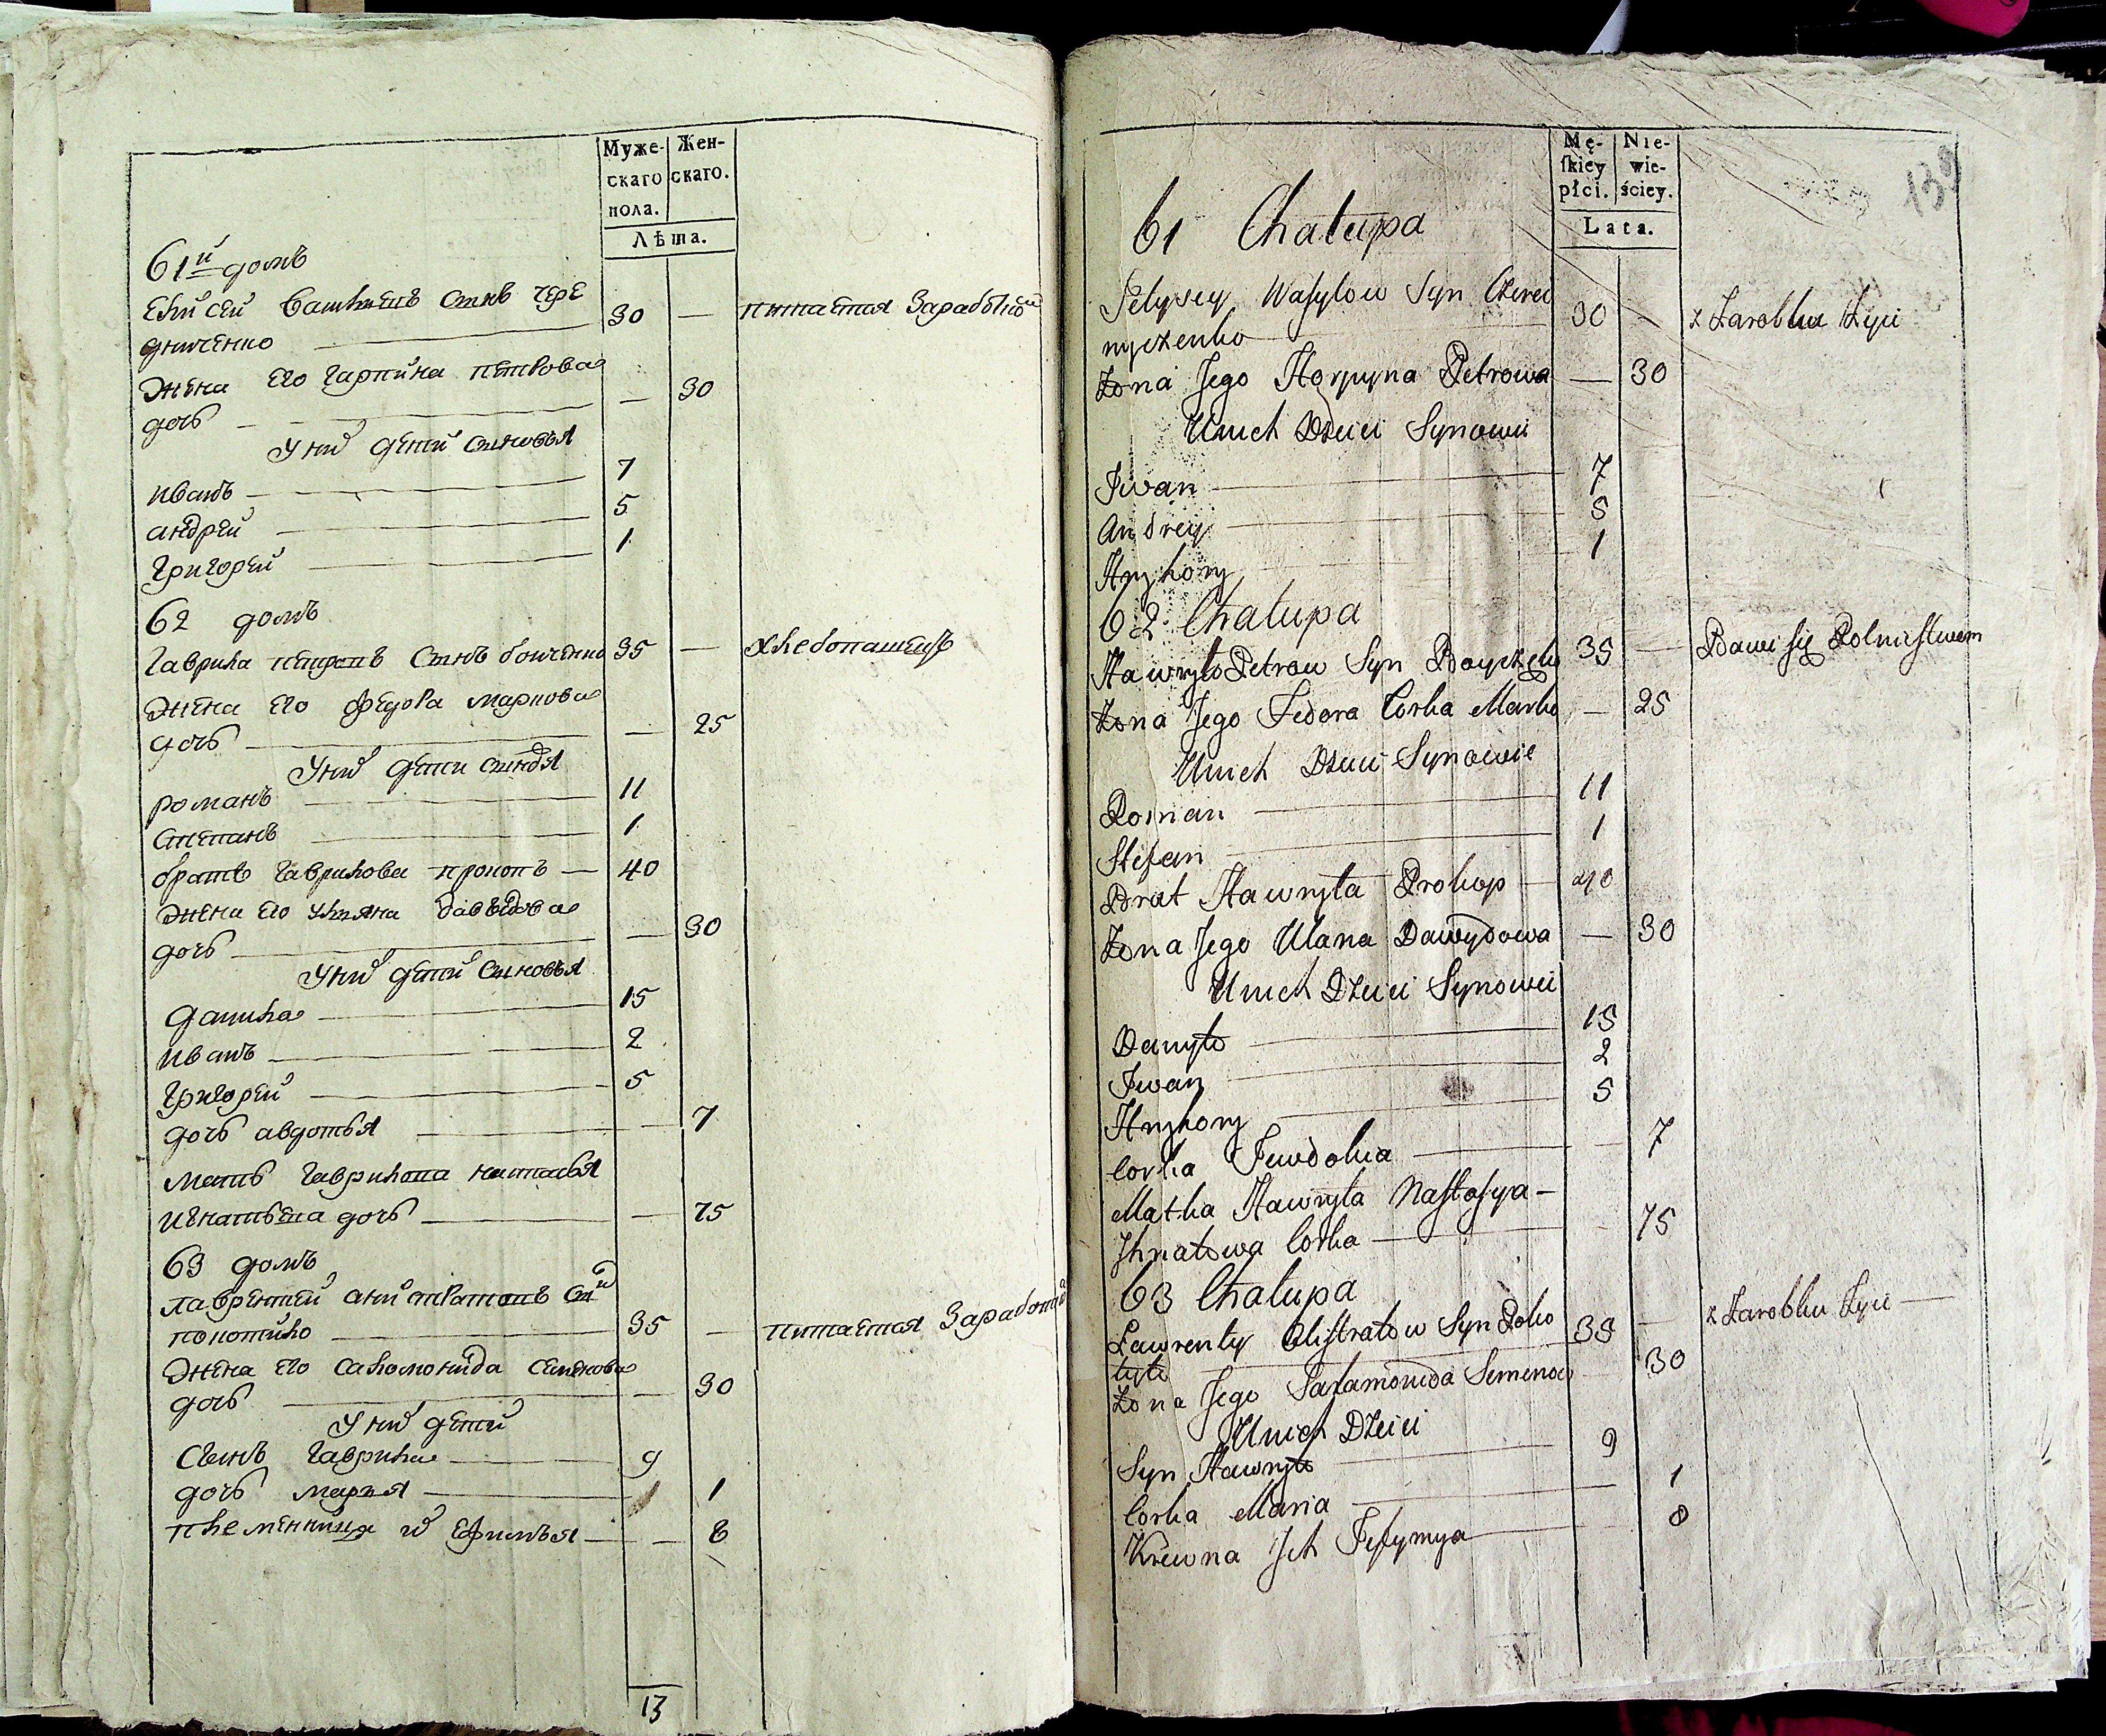 Муже-
скаго
пола.
Жен-
скаго.
Лѣта.
61й домъ
Елисей Ꙋ васильевъ сынъ чере
дниченко 30 — питается Заработкой
жена его гарпина петрова
дочь — 30
У них дети сыновья
иванъ 7
андрей 5
григорей 1
62 домъ
гаврила петровъ сынъ бойченко 35 — хлебопашецъ
жена его федора маркова
дочь — 25
У них дети сыновья
романъ 11
степанъ 1
братъ гаврилова прокопъ — 40
жена его ульяна давыдова
дочь — 30
У них дети сыновья
данила 15
иванъ 2
григорей 5
дочь авдотья — 7
мать гаврилова настасья
игнатьева дочь — 75
63 домъ
лаврентей алистратовъ сын
покотило 35 — питается Заработкой
жена его саломонида семенова
дочь — 30
У них дети
сынъ гаврила 9
дочь марья 1
племянница их Ефимья — 8
13
Mę-
skiey
płci.
Nie-
wie-
ściey.
Lata.
139
61 Chałupa
Jełysey Wasylow Syn Czered
nyczenko 30 — z Zarobku Żyie
Żona Jego Horpyna Petrowa — 30
U nich Dzieci Synowie
Jwan 7
Andrey 5
Hryhory 1
62 Chałupa
Hawryło Petrow Syn Boyczenko 35 — Bawi się Rolnictwem
Żona Jego Fedora Corka Marko — 25
U nich Dzieci Synowie
Roman 11
Stefan 1
Brat Hawryła Prokop — 40
Żona Jego Ulana Dawydowa — 30
U nich Dzieci Synowie
Danyło 15
Jwan 2
Hryhory 5
Corka Jewdokia — 7
Matka Hawryła Nastasya —
Jhnatowa Corka — 75
63 Chałupa
Ławrenty Alistratow Syn Poko
tyło 35 — z Zarobku Żyie —
Żona Jego Sałamonida Semenow 30
U nich Dzieci
Syn Hawryło 9
Corka Maria 1
Krewna Jch Jefymya 8